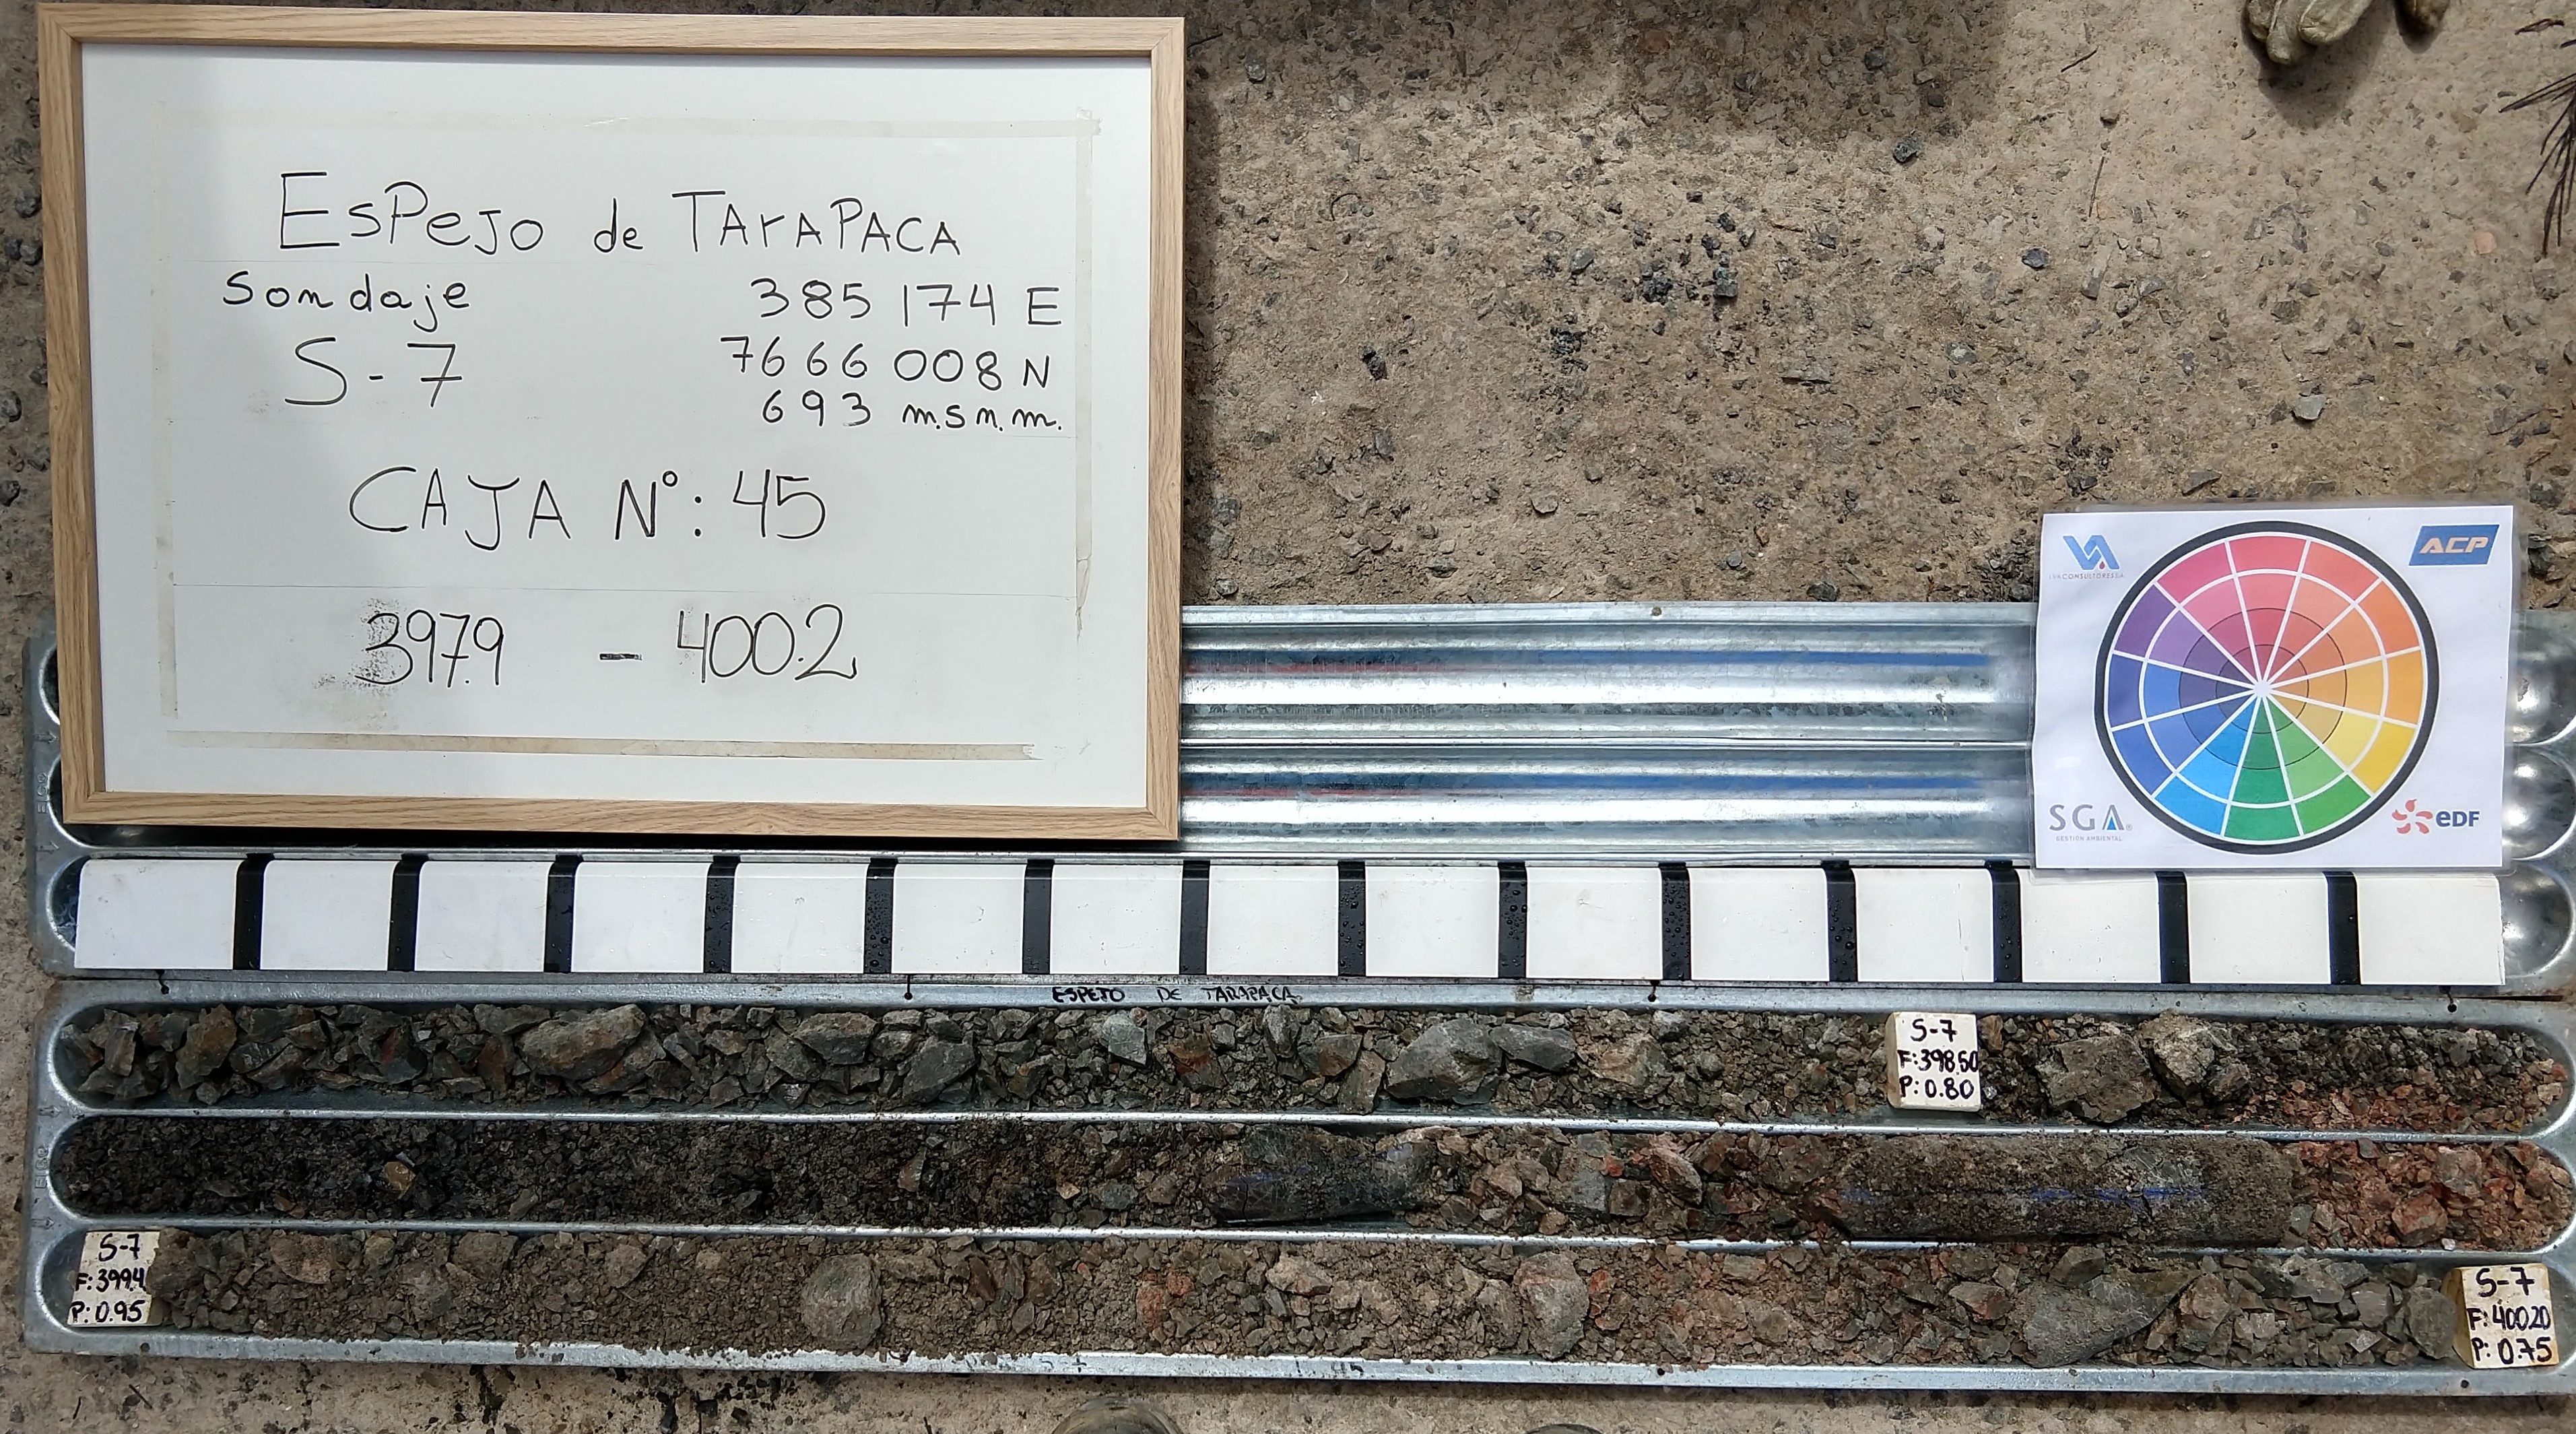 ESPEJO de TARAPACA
Sondaje
S-7
385 174 E
7666 008 N
693 m.s.n.m.
CAJA N°: 45
397.9 - 400.2
ACP
SGA
GESTIÓN AMBIENTAL
eDF
ESPEJO DE TARAPACA
S-7
F:398.50
P:0.80
S-7
F:399.4
P:0.95
S-7
F:400.20
P:0.75